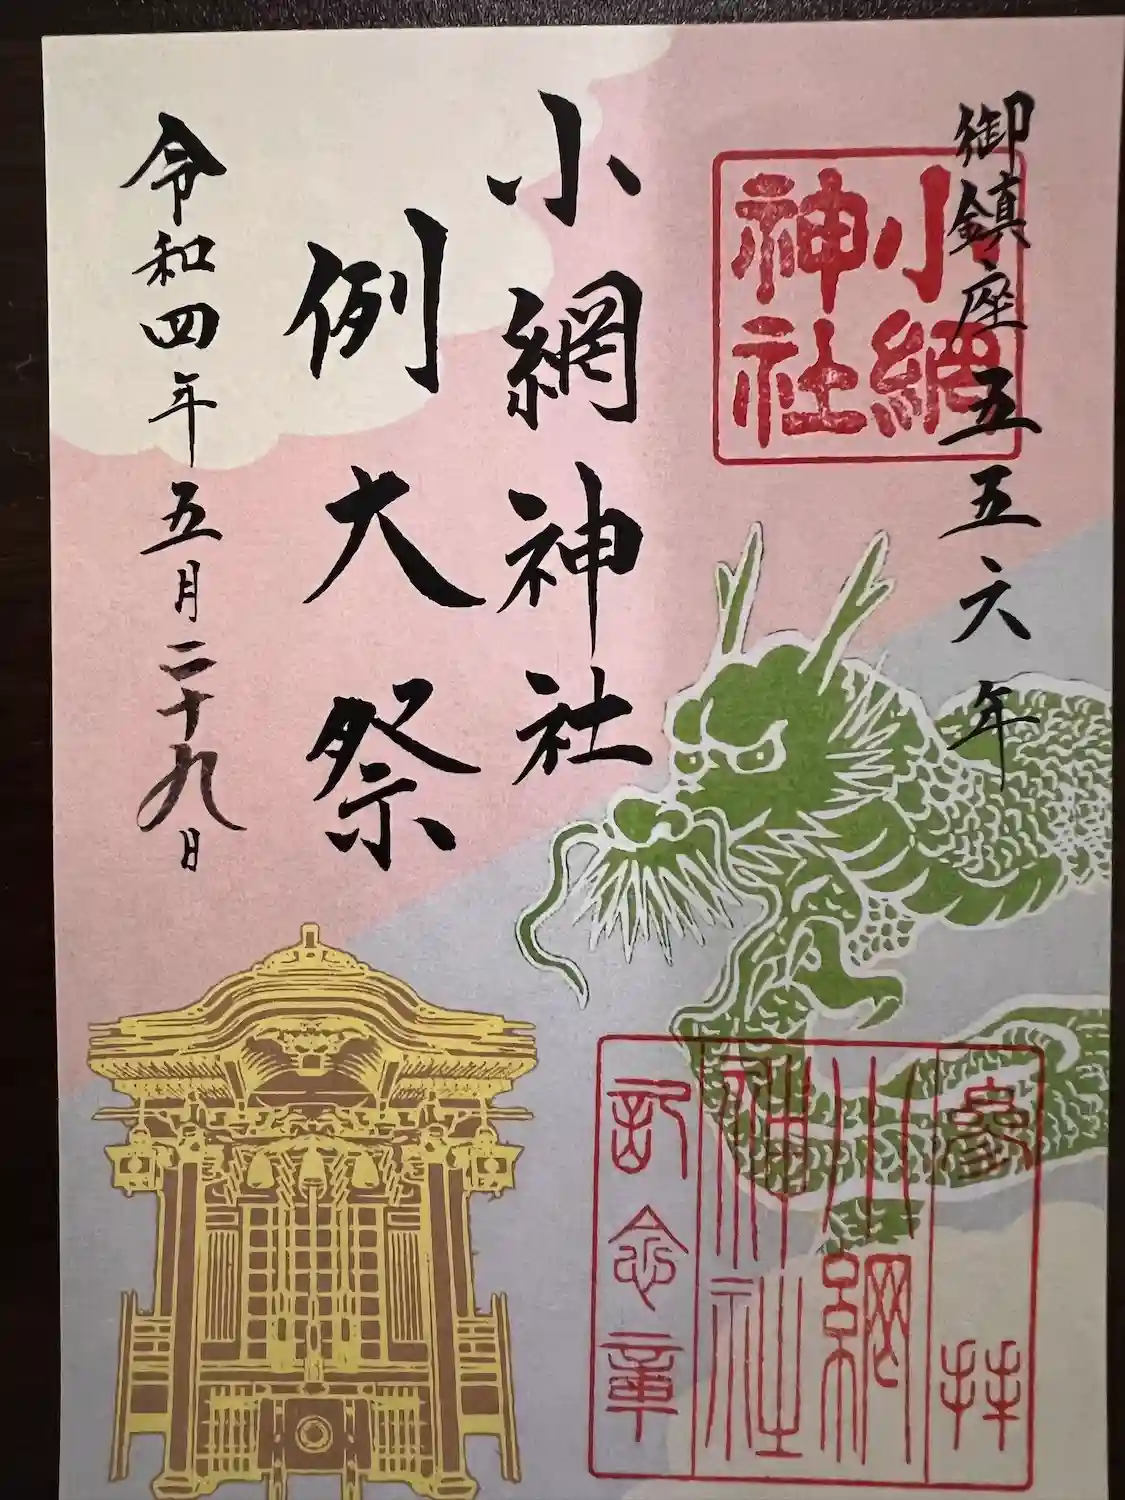 御鎮座五五六年
小網神社
小網神社
例大祭
令和四年五月二十九日
參拝
小網
神社
記念章